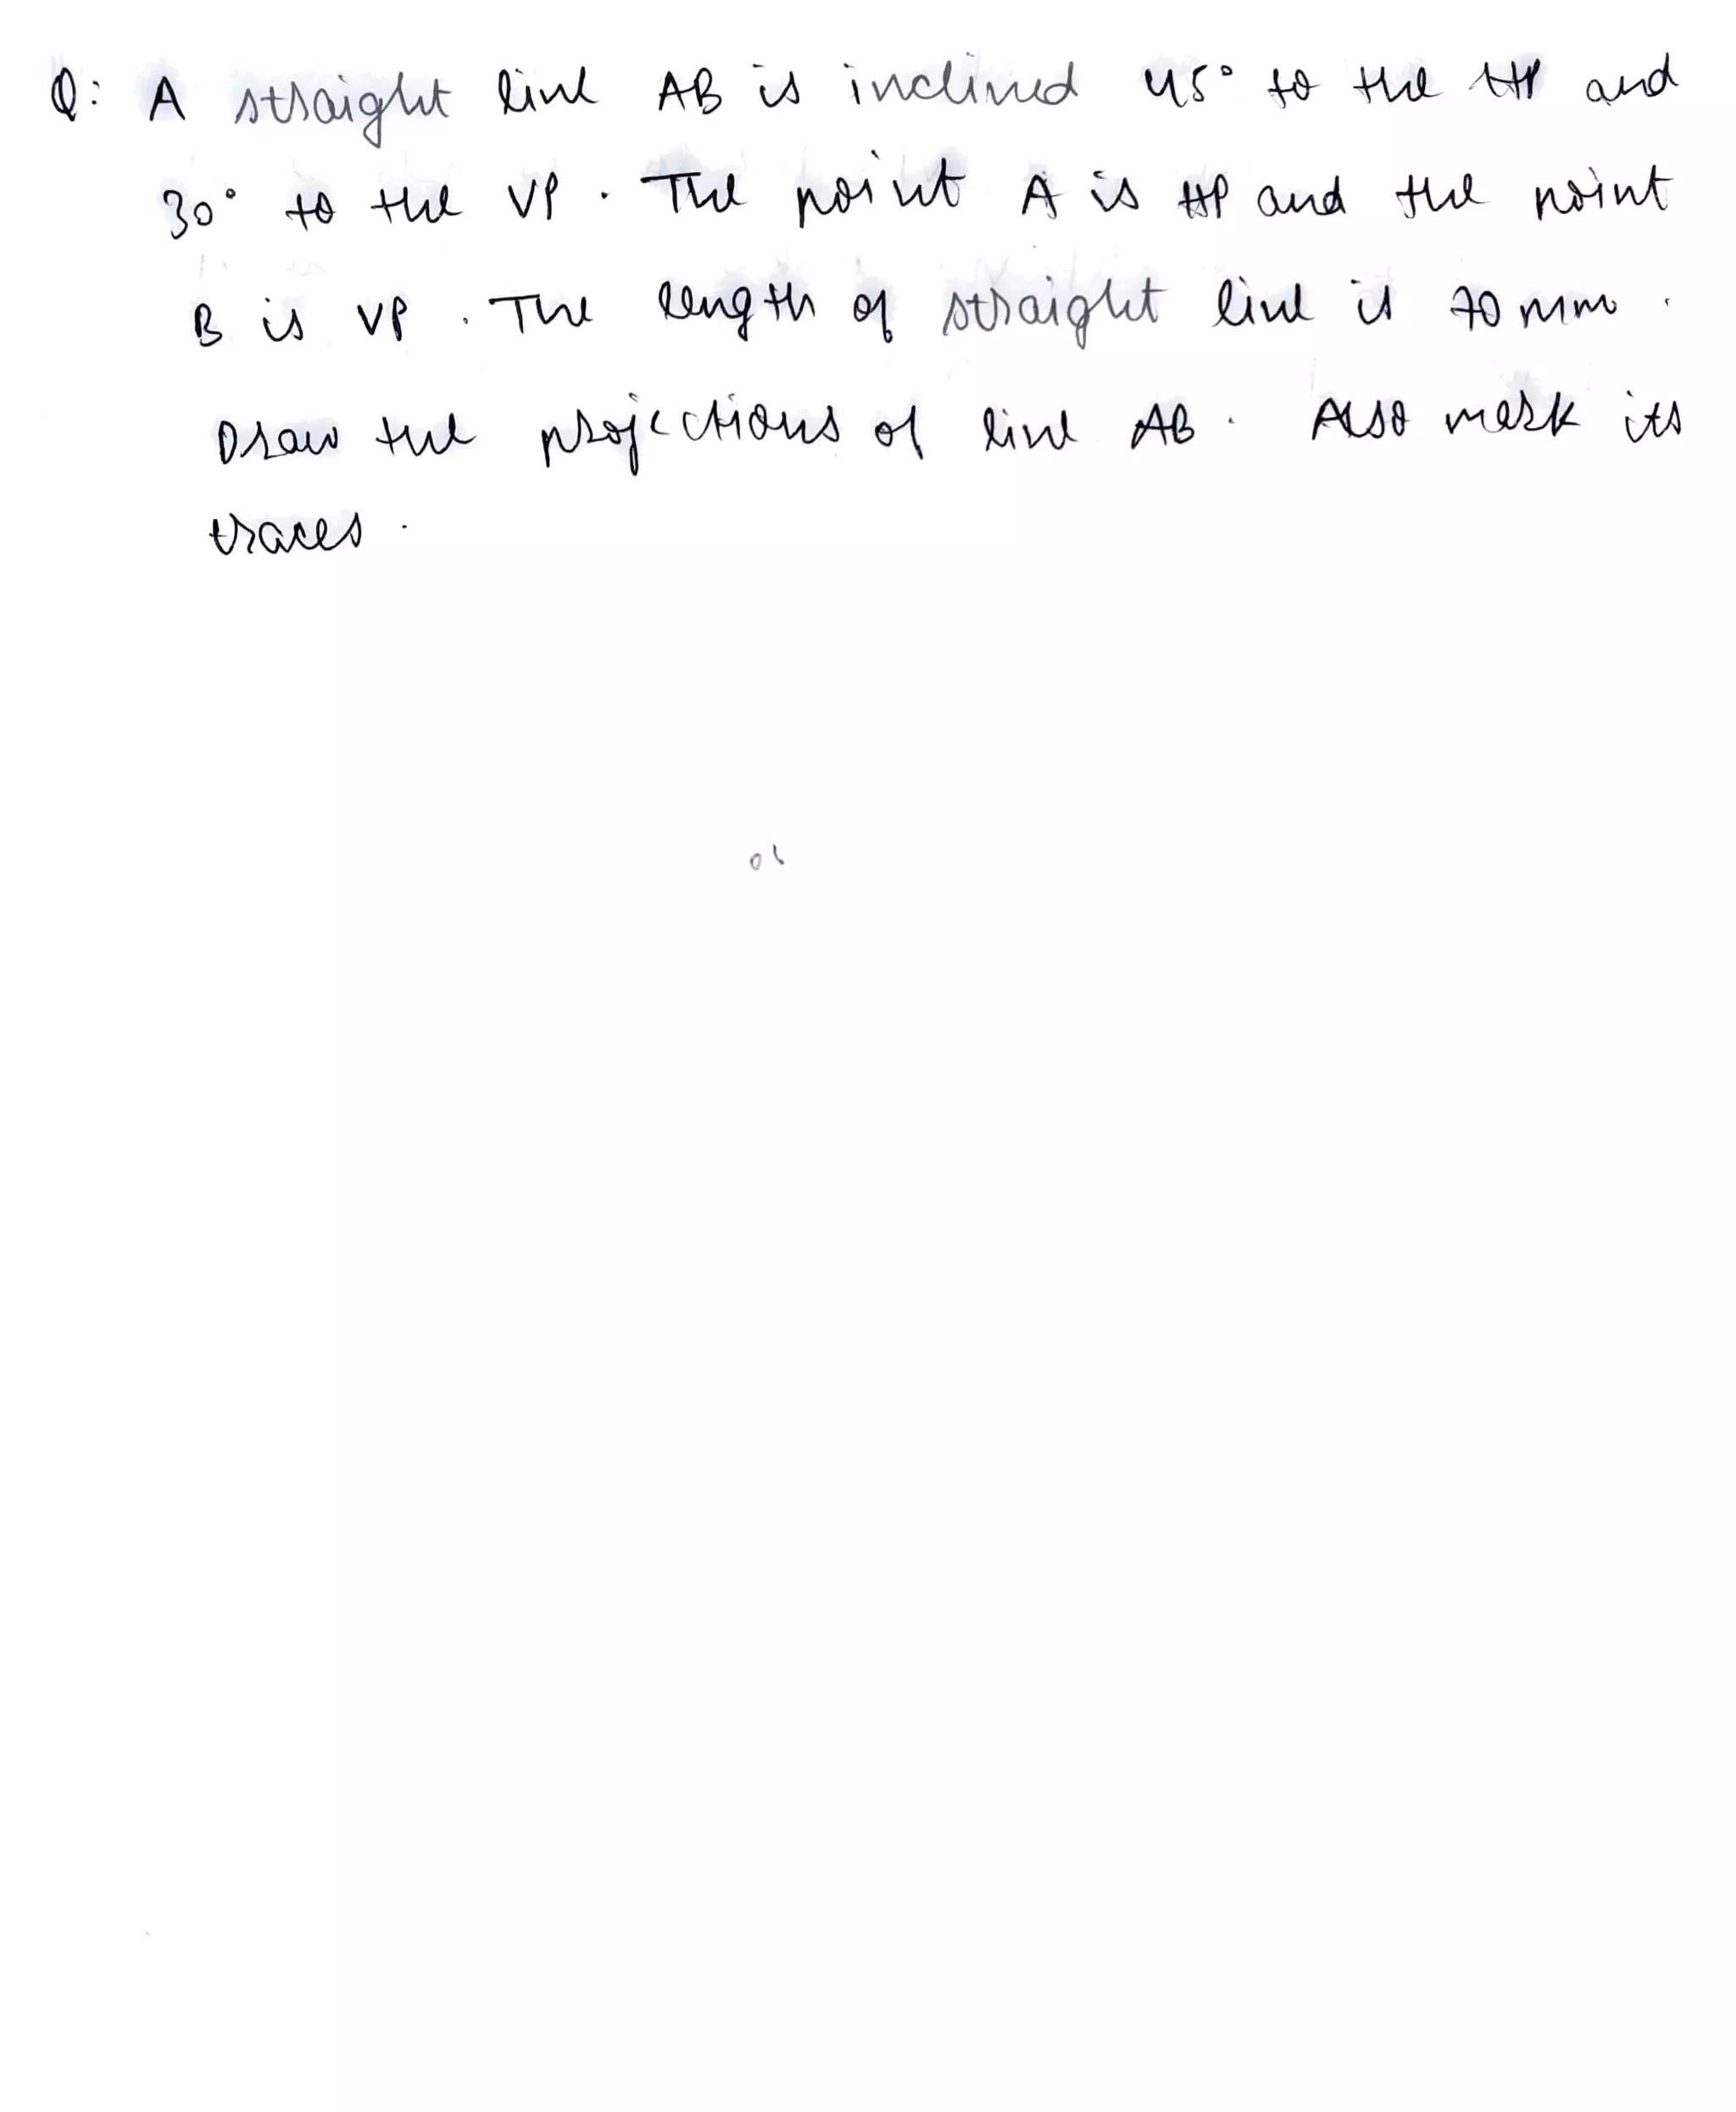 Q: A straight line AB is inclined 45° to the HP and
30° to the VP. The point A is HP and the point
B is VP. The length of straight line is 70 mm.
Draw the projections of line AB. Also mark its
traces.